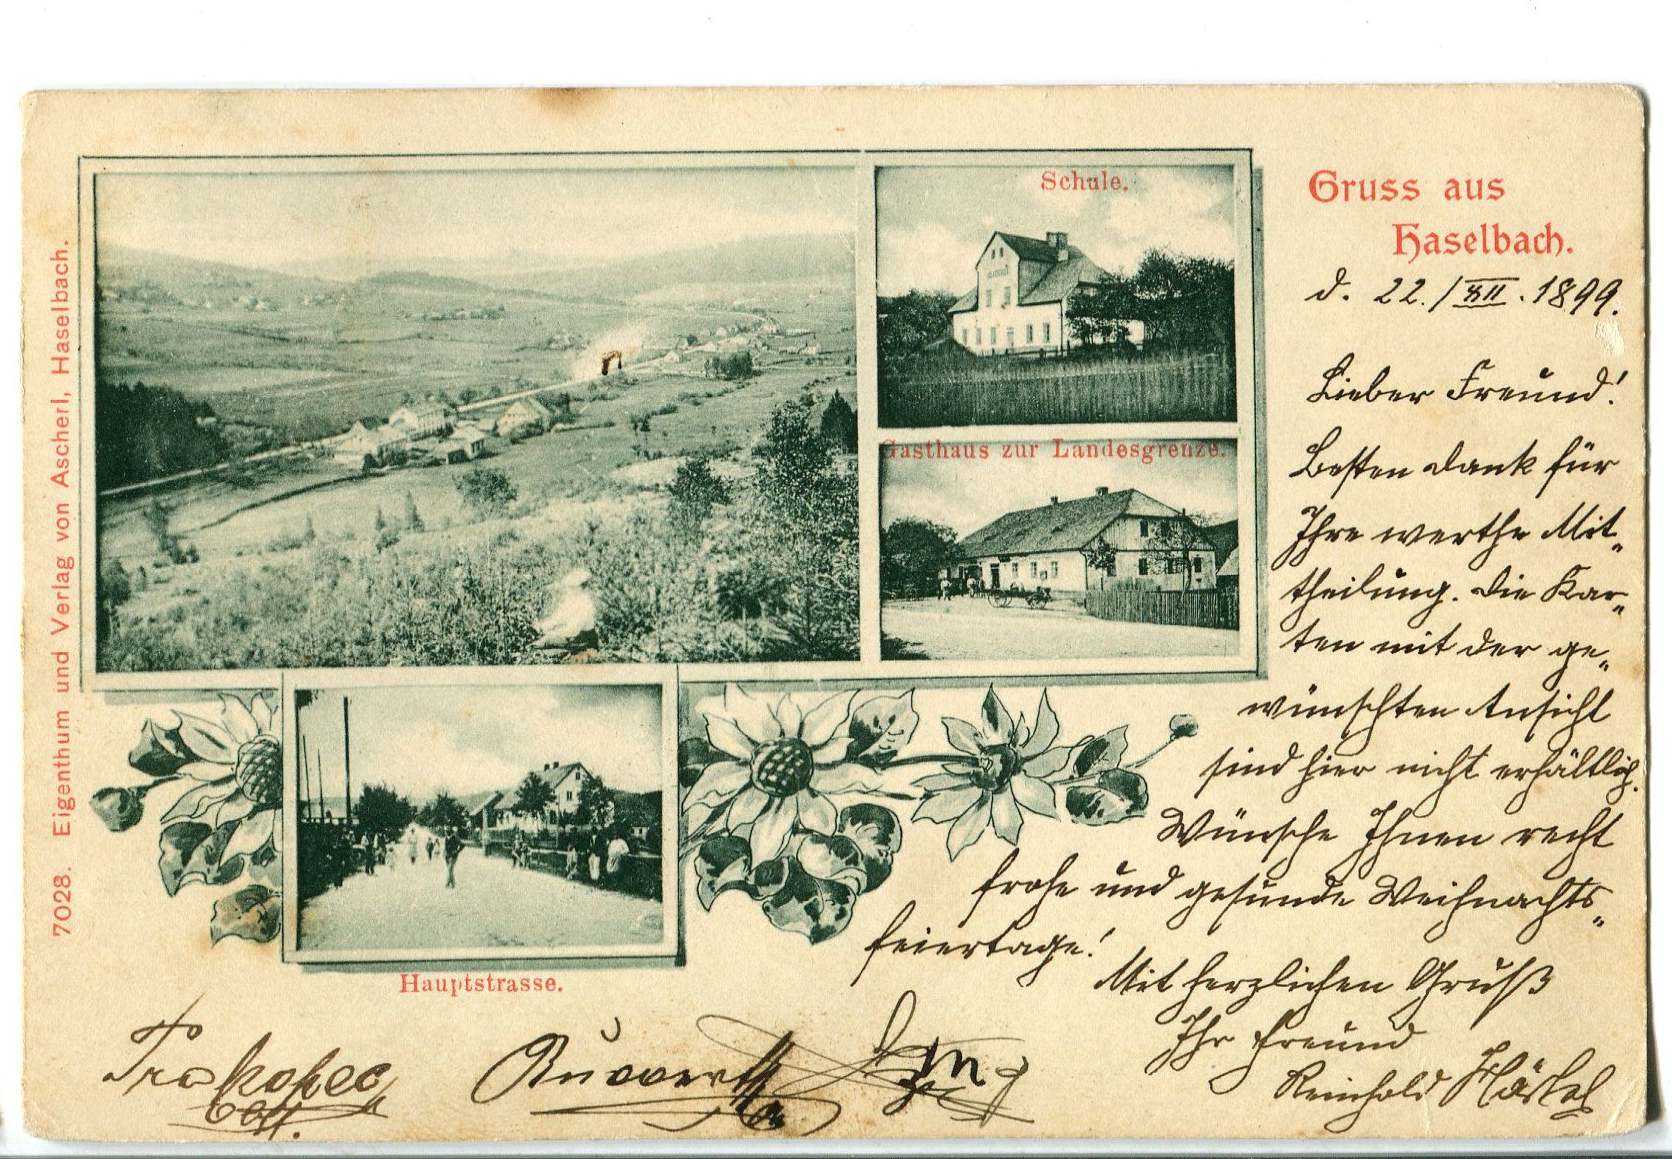 Gruss aus
Haselbach.
d. 22./XII. 1899.
Lieber Freund!
Besten Dank für
Ihre werthe Mit-
theilung. Die Kar-
ten mit der ge-
wünschten Ansicht
sind hier nicht erhältlich.
Wünsche Ihnen recht
frohe und gesunde Weihnachts-
feiertage!
Mit herzlichen Gruß
Ihr Freund
Reinhold
Schule.
Gasthaus zur Landesgrenze.
Hauptstrasse.
7028. Eigenthum und Verlag von Ascherl, Haselbach.